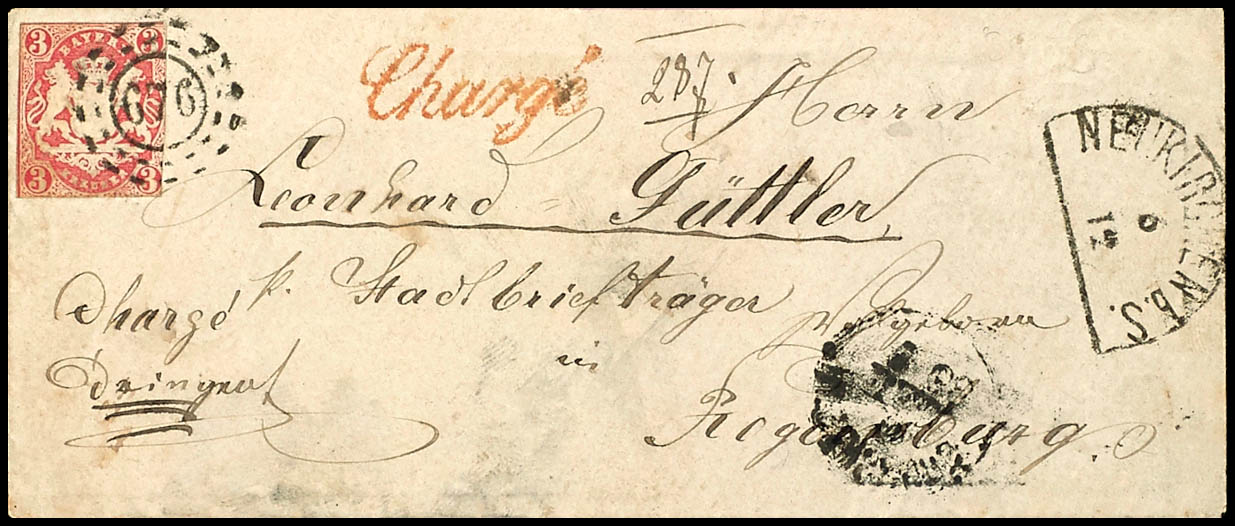 3 BAYERN 3
3 3
676
Chargé
287
Herrn
Leonhard = Püttler,
k. Stadtbriefträger
Wohlgeboren
in
Regensburg.
Chargé
Dringent
NEUKIRCHEN b. S.
6
12